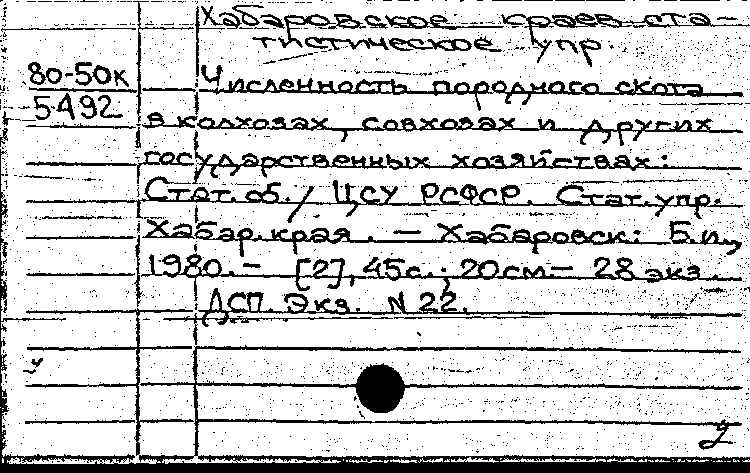 Хабаровское краев. ста-
тистическое упр.
80-50к
5492
Численность породного скота
в колхозах, совхозах и других
государственных хозяйствах:
Стат. сб. / ЦСУ РСФСР. Стат. упр.
Хабар. края. — Хабаровск: Б.и.,
1980. — [2], 45с.; 20см — 28 экз.
ДСП. Экз. N 22.
у
у